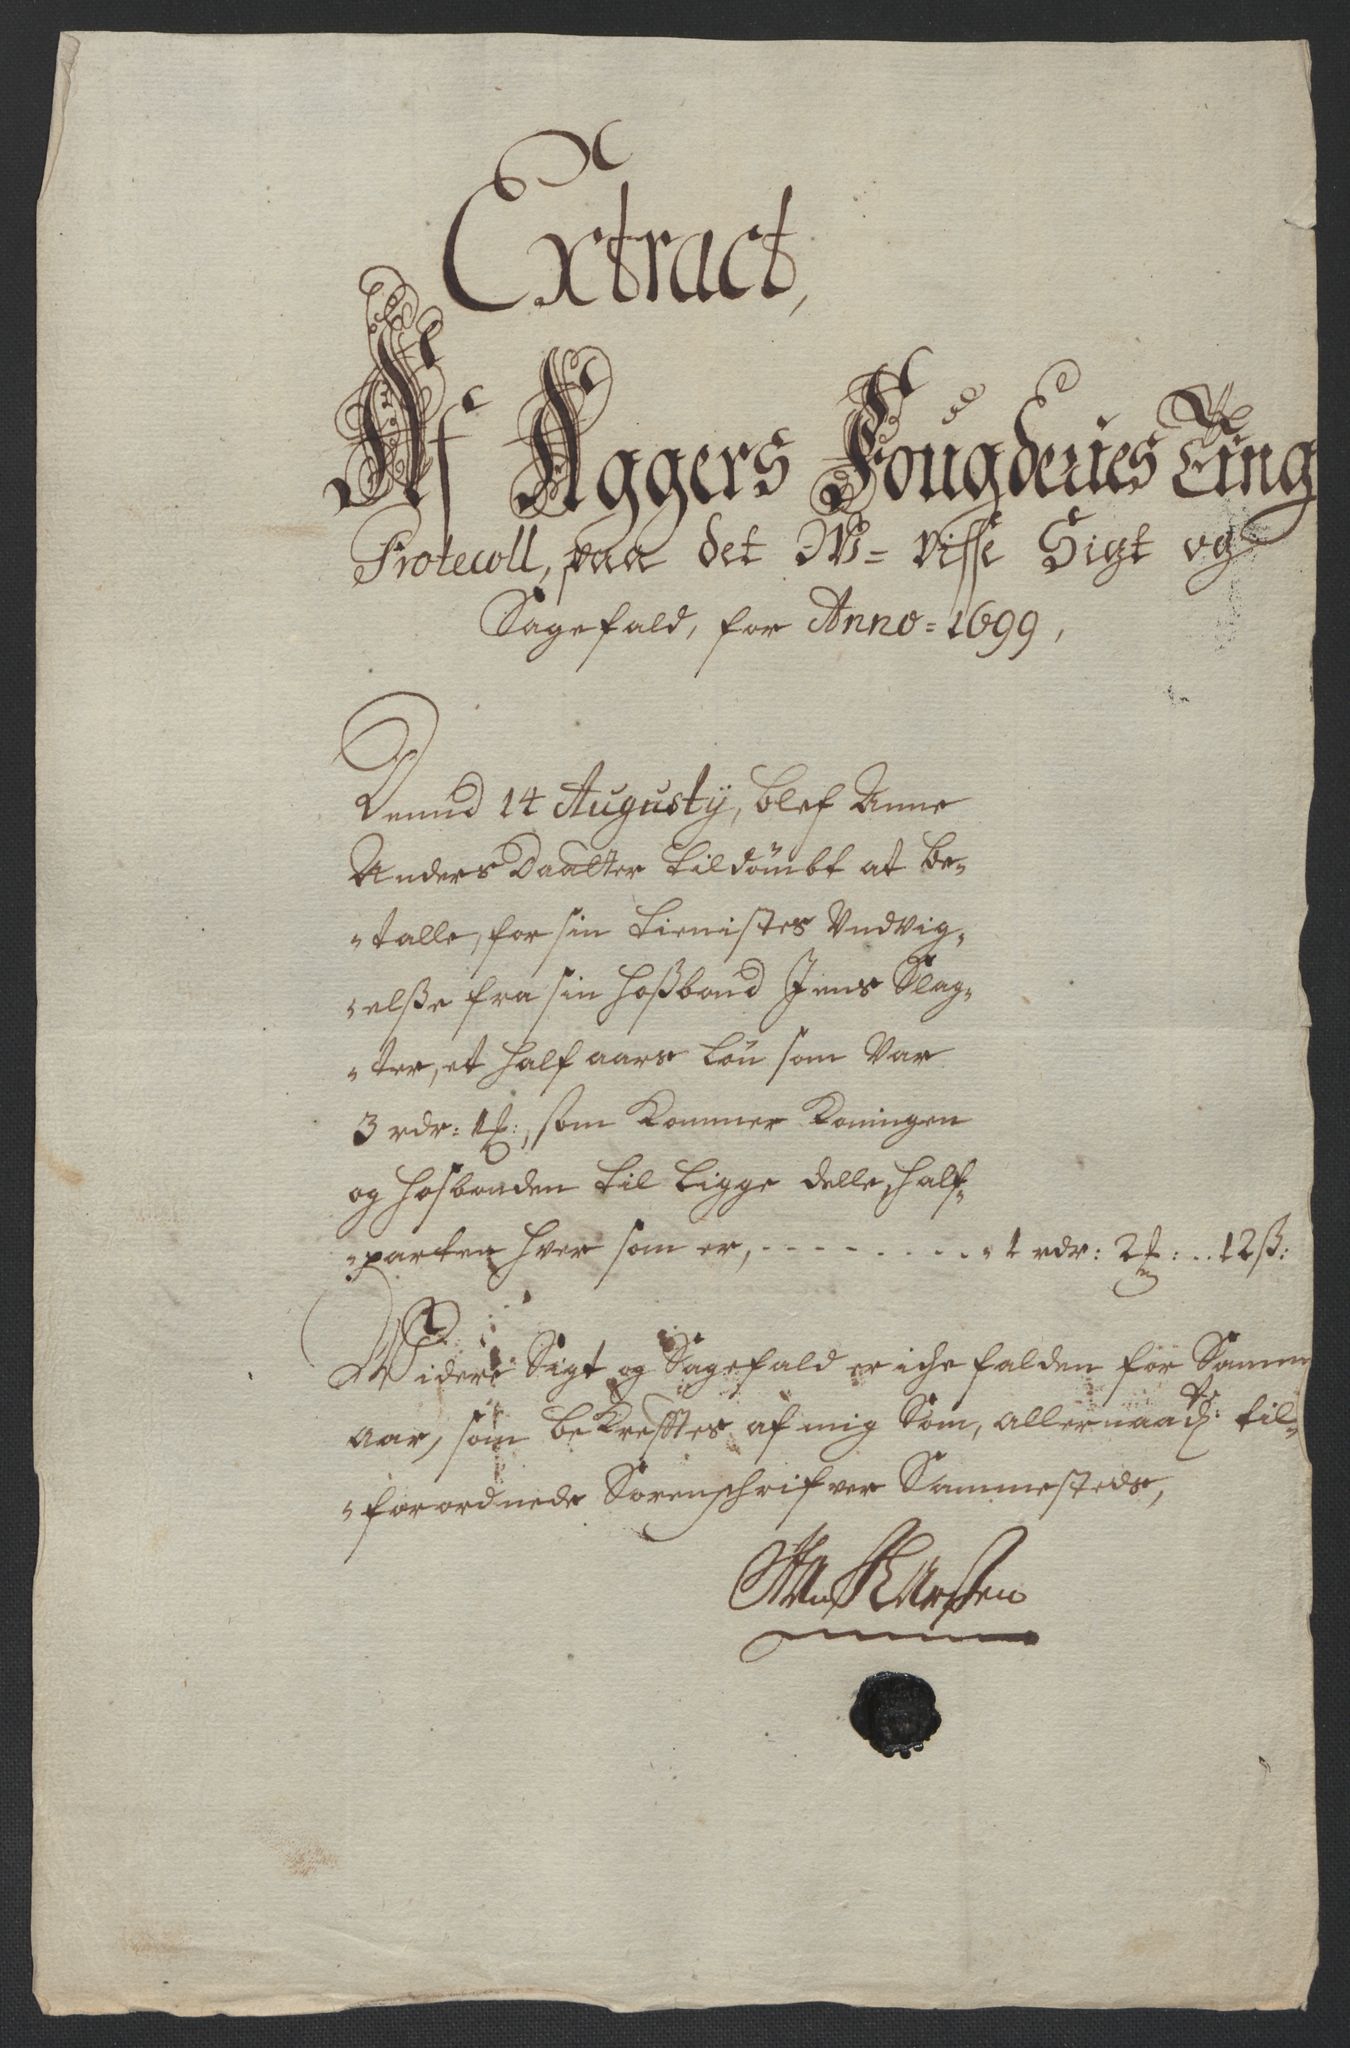 Extract,
Af Aggers Fougderies Ting
Protecoll, paa det W= visse Sigt og
Sagefald, for Anno = 1699,
Dennd 14 Augusty, blef Anne
Anders Daatter tildömbt at be-
-talle, for sin tienistes Vndvig-
-elße fra sin hoßbond Jens Slag-
-ter, et half aars løn som Var
3 rdr: 1 , som Kommer Koningen
og hosbonden til ligge delle, half-
-parten hver som er, - - - - - - - - 1 rdr: 2 : .. 12 ß:
Widere Sigt og Sagefald er iche falden for Samme
aar, som bekrefftes af mig Som, allernaadsᵗ: til-
-forordnede Sorenschrifver Sammesteds,